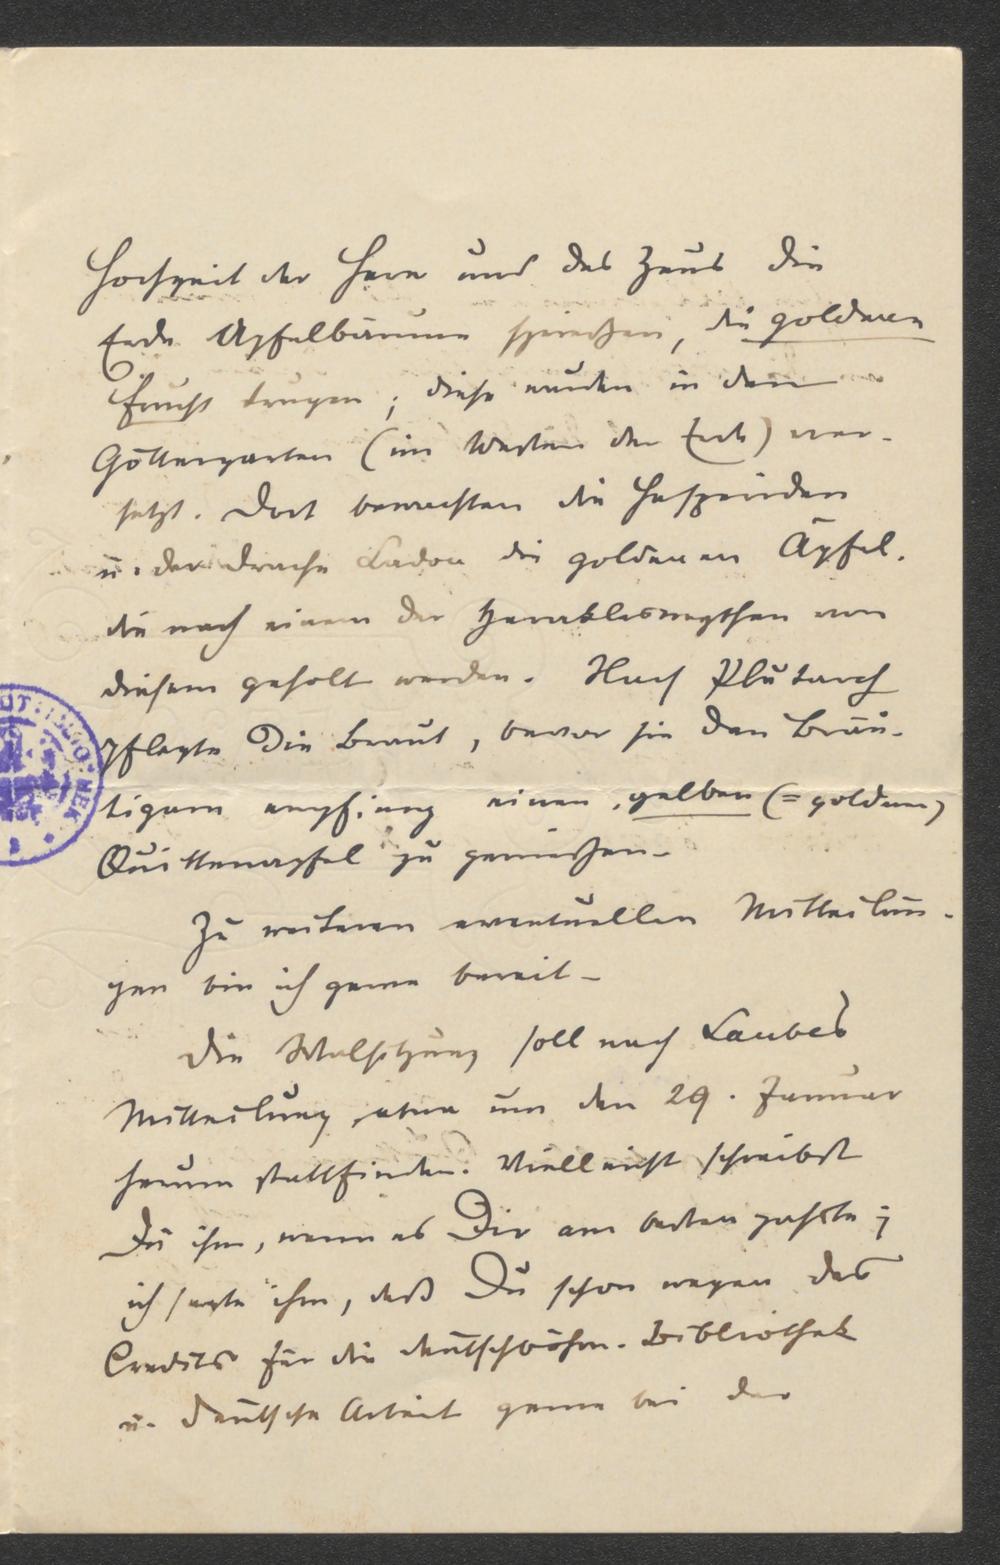 Hochzeit der Here und des Zeus die
Erde Apfelbäume spriessen, die goldene
Frucht trugen; diese wurden in den
Göttergarten (im Westen der Erde) ver-
setzt. Dort bewachten die Hesperiden
u. der Drache Ladon die goldenen Äpfel.
die nach einem der Heraklesmythen von
diesem geholt werden. Nach Plutarch
pflegte Die Braut, bevor sie den Bräu-
tigam empfieng einen gelben (= goldenen)
Quittenapfel zu geniessen.
Zu weiteren eventuellen Mitteilun-
gen bin ich gerne bereit.
Die Wahlsitzung soll nach Laubes
Mitteilung etwa um den 29. Januar
herum stattfinden. Vielleicht schreibst
Du ihm, wenn es Dir am besten passte;
ich sagte ihm, daß Du schon wegen des
Credits für die deutschböhm. Bibliothek
u. deutsche Arbeit gerne bei der